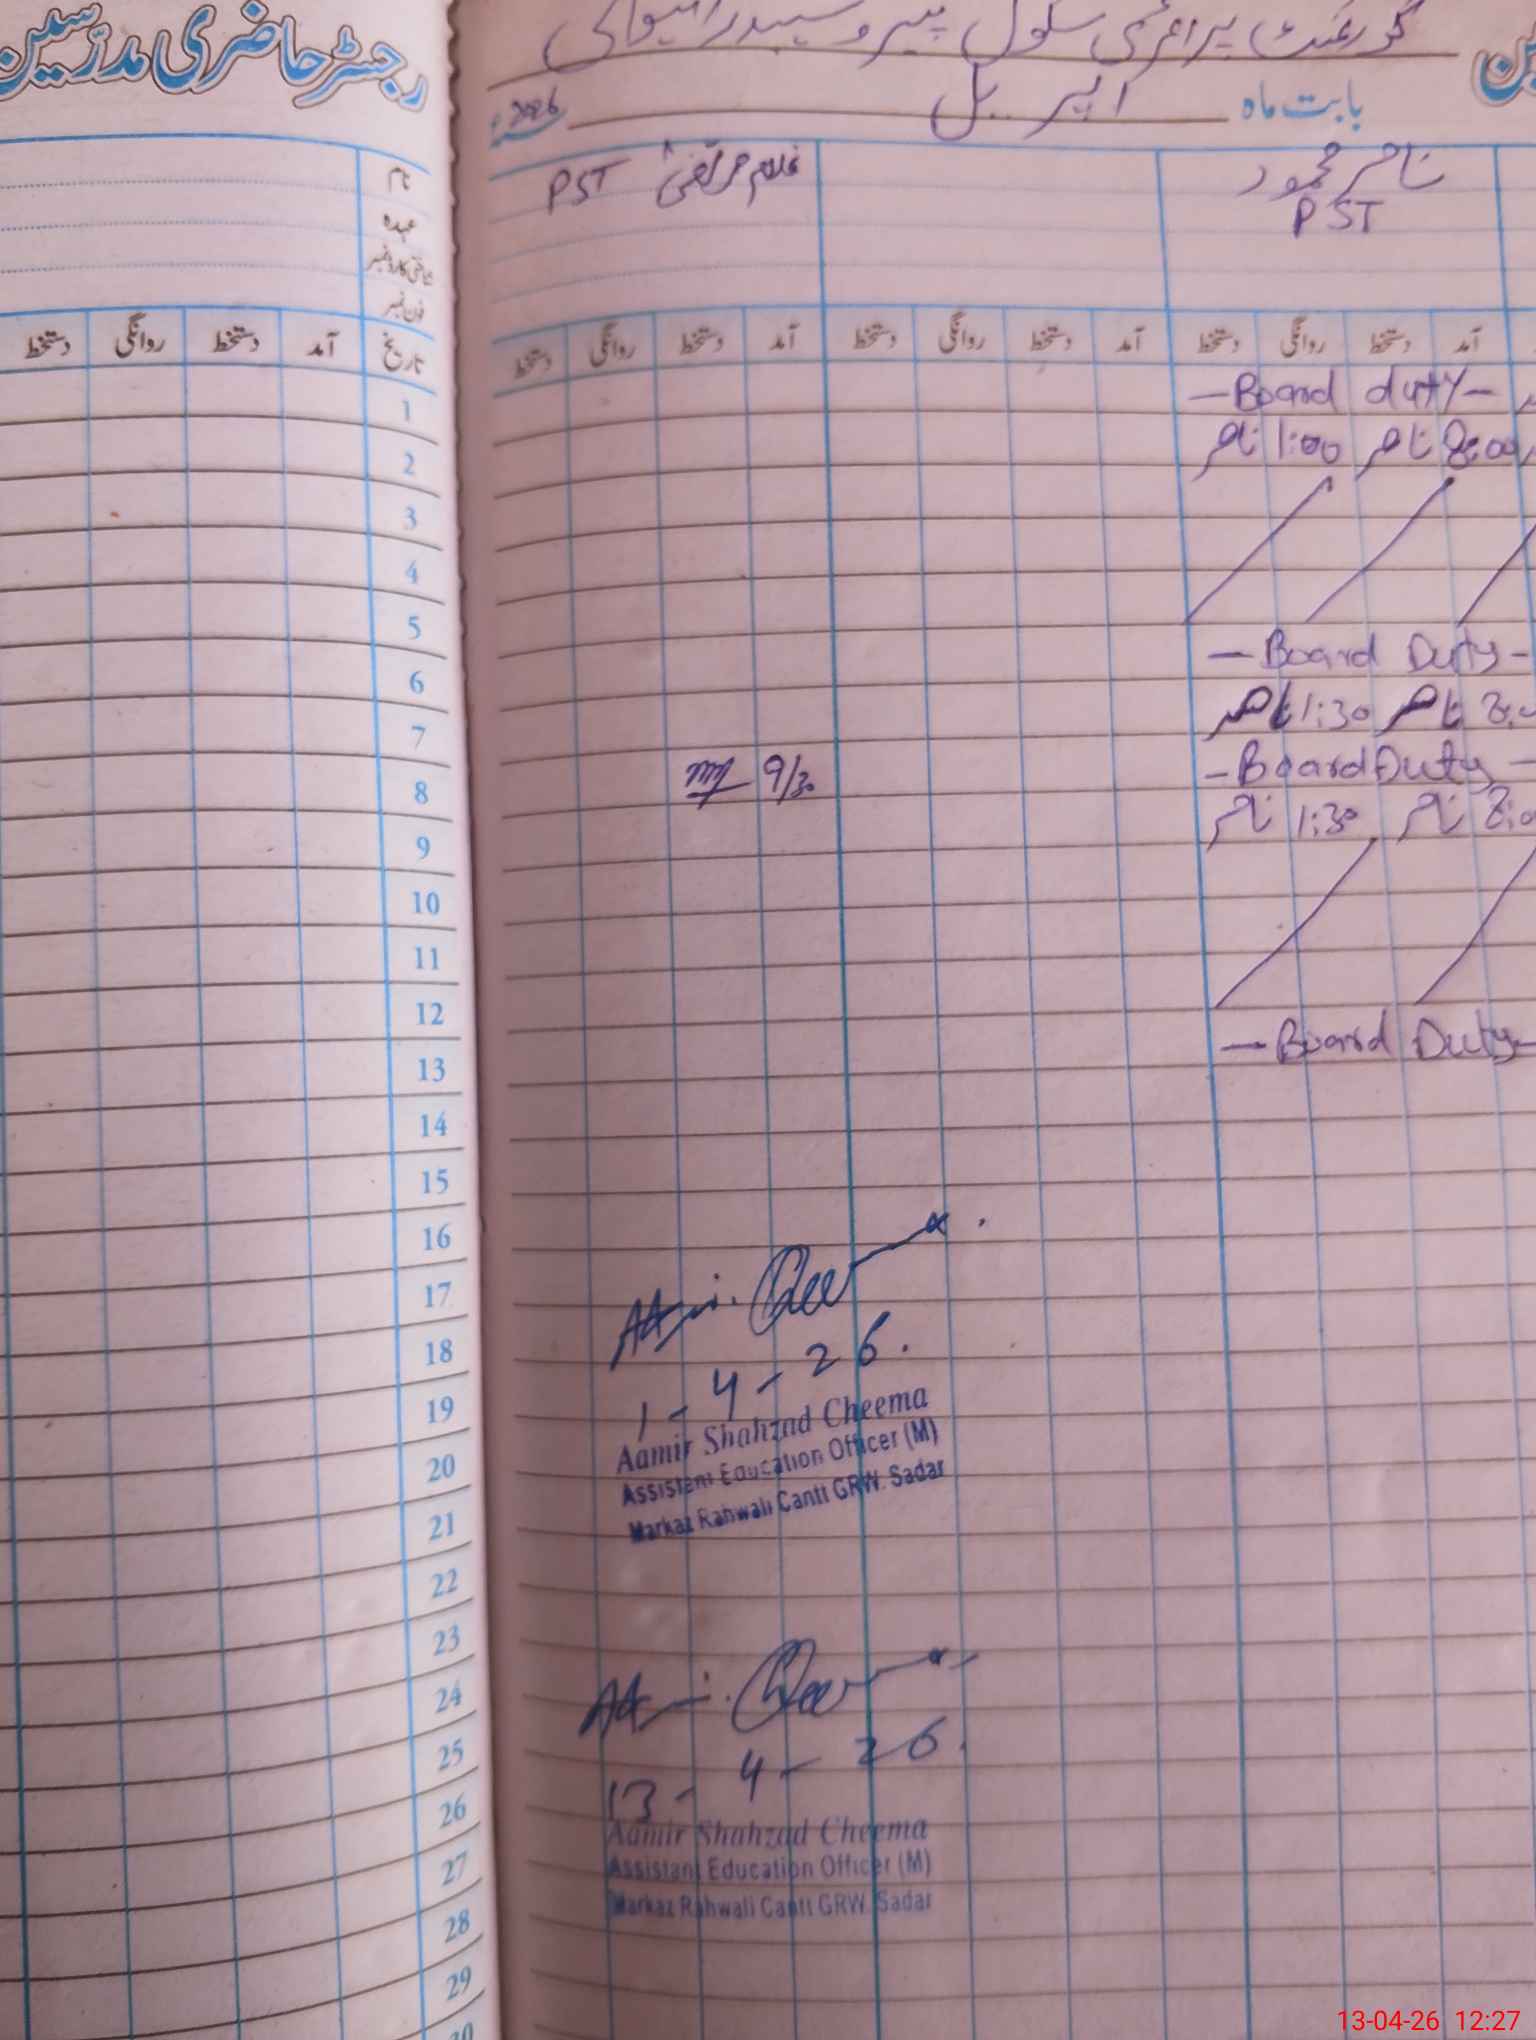 رجسٹر حاضری مدرسین
نام
عہدہ
شناختی کارڈ نمبر
فون نمبر
تاریخ آمد دستخط روانگی دستخط
1
2
3
4
5
6
7
8
9
10
11
12
13
14
15
16
17
18
19
20
21
22
23
24
25
26
27
28
29
30
گورنمنٹ پرائمری سکول پیرو
بابت ماہ اپریل 2026ء
ناصر محمود غلام مرتضیٰ PST
PST
آمد دستخط روانگی دستخط آمد دستخط روانگی دستخط آمد دستخط روانگی دستخط
— Board duty —
8:00 ناصر 1:00 ناصر
— Board Duty —
ناصر 1:30 ناصر
— Board Duty —
9/30
ناصر 1:30 ناصر
— Board Duty —
1-4-26.
Aamir Shahzad Cheema
Assistant Education Officer (M)
Markaz Rahwali Cantt GRW. Sadar
13-4-26.
Aamir Shahzad Cheema
Assistant Education Officer (M)
Markaz Rahwali Cantt GRW. Sadar
13-04-26 12:27